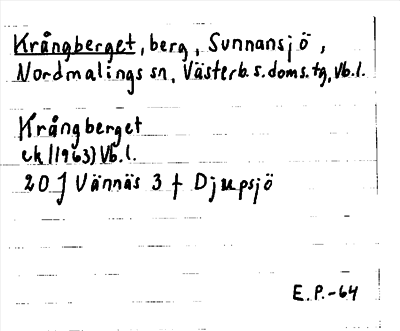 Krångberget, berg, Sunnansjö,
Nordmalings sn, Västerb. s. doms. tg, Vb. l.
Krångberget
ek (1963) Vb. l.
20 J Vännäs 3 f Djupsjö
E. P. -64